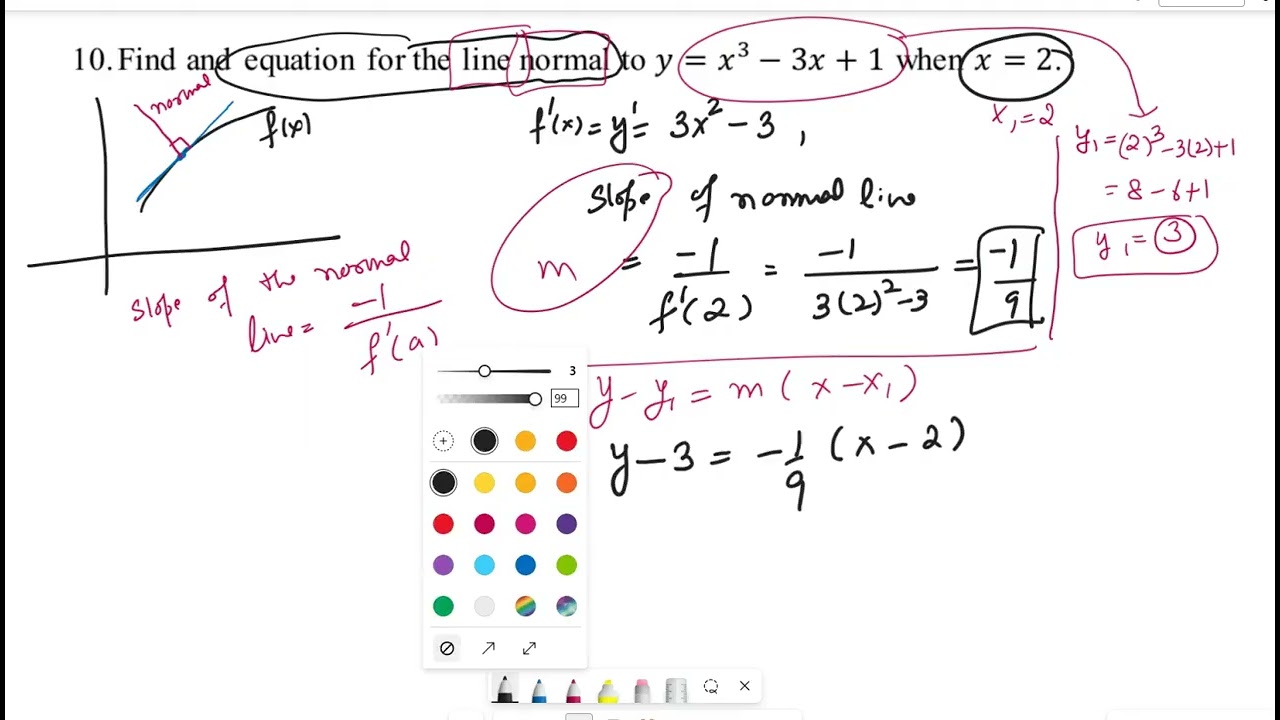 10. Find and equation for the line normal to y = x³ − 3x + 1 when x = 2.
normal
f(x)
f'(x) = y' = 3x² − 3 ,
x₁ = 2
y₁ = (2)³ − 3(2) + 1
= 8 − 6 + 1
y₁ = 3
Slope of normal line
m = -1/f'(2) = -1/(3(2)² − 3) = -1/9
Slope of the normal
line = -1/f'(a)
3
99
y − y₁ = m (x − x₁)
y − 3 = -1/9 (x − 2)